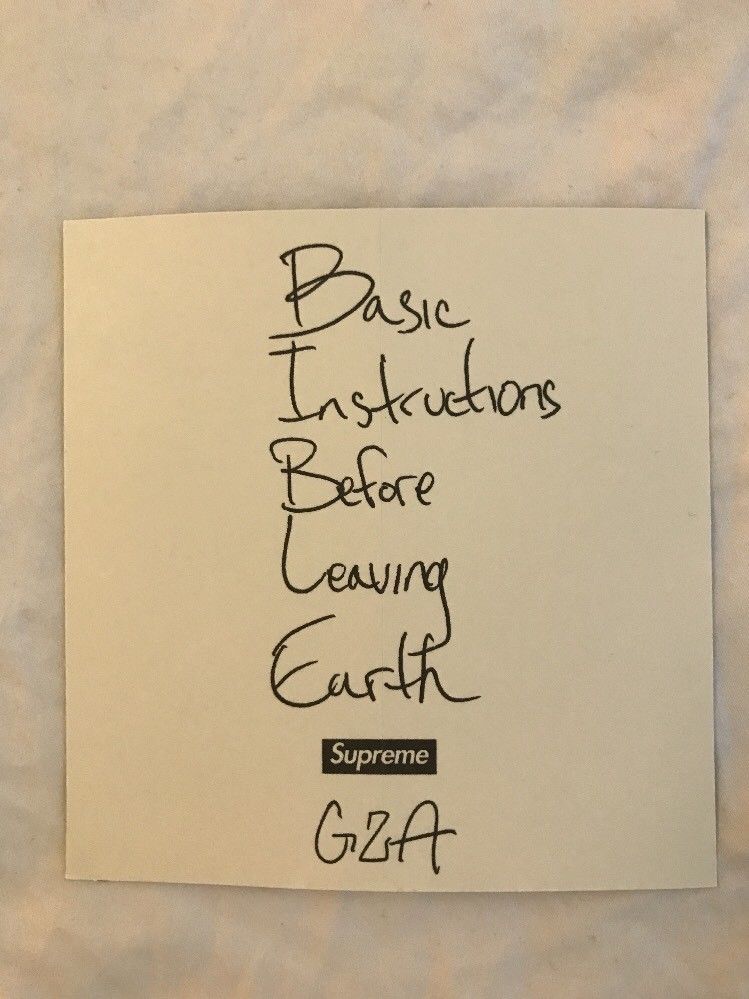 Basic
Instructions
Before
Leaving
Earth
Supreme
GZA